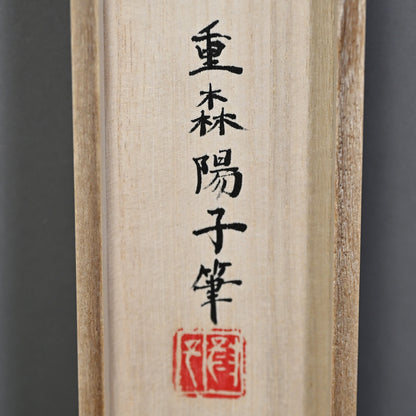 重森陽子筆